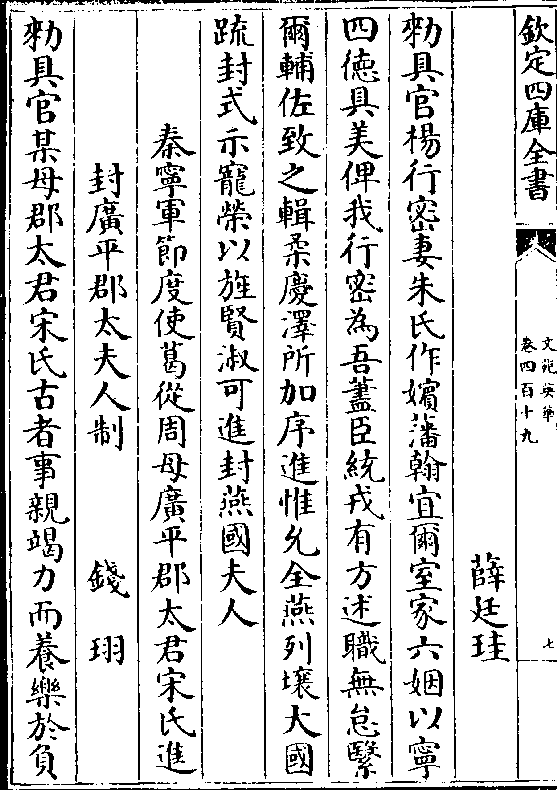 欽定四庫全書
文苑英華
卷四百十九
七
薛廷珪
勑具官楊行密妻朱氏作嬪藩翰宜爾室家六姻以寧
四徳具美俾我行密為吾藎臣統戎有方述職無怠繄
爾輔佐致之輯柔慶澤所加序進惟允全燕列壤大國
䟽封式示寵榮以旌賢淑可進封燕國夫人
秦寧軍節度使葛從周母廣平郡太君宋氏進
封廣平郡太夫人制
錢珝
勑具官某母郡太君宋氏古者事親竭力而養樂於負